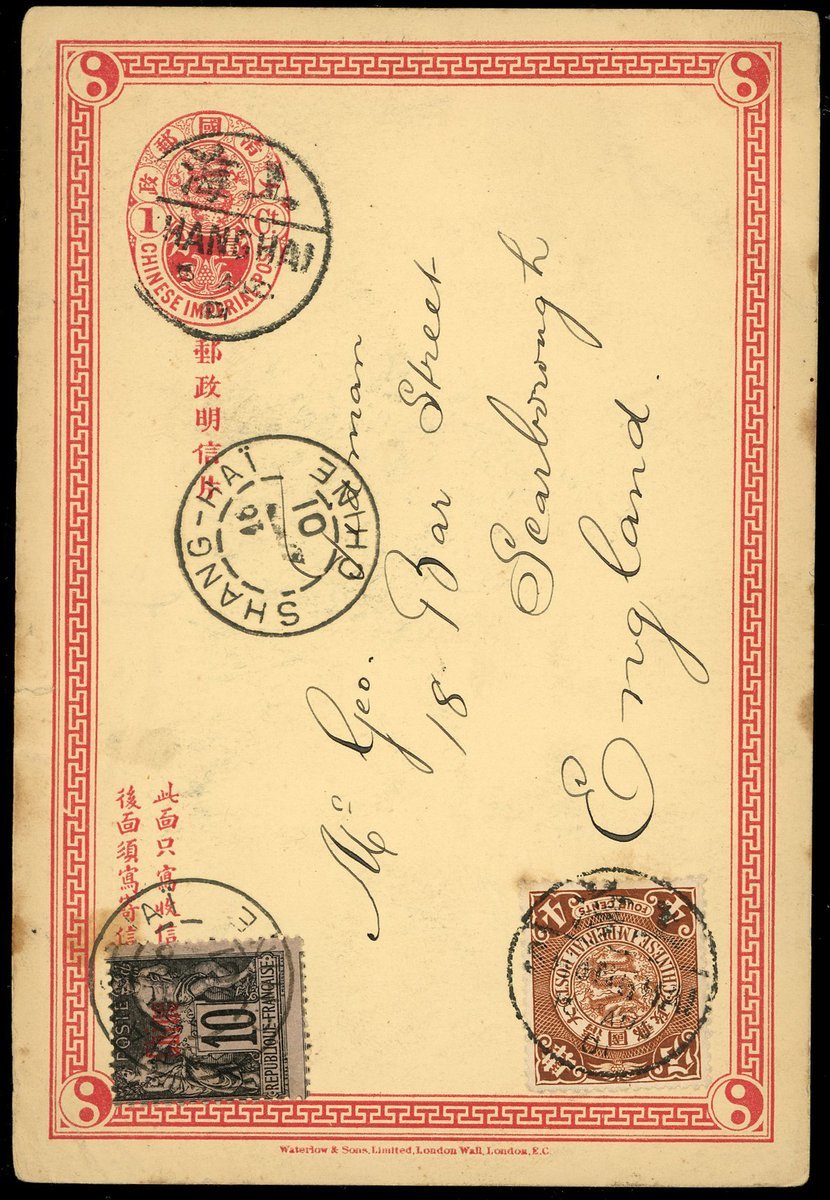 大清國郵政
1 Ct.
CHINESE IMPERIAL POST
上海
SHANGHAI
郵政明信片
SHANG-HAÏ
CHINE
16
01
Mr. Geo.
18 Bar Street
Scarborough
England.
此面只寫收信
後面須寫寄信
POSTES
10
REPUBLIQUE FRANÇAISE
4
FOUR CENTS
4
CHINESE IMPERIAL POST
大清國郵政
Waterlow & Sons, Limited, London Wall, London, E.C.